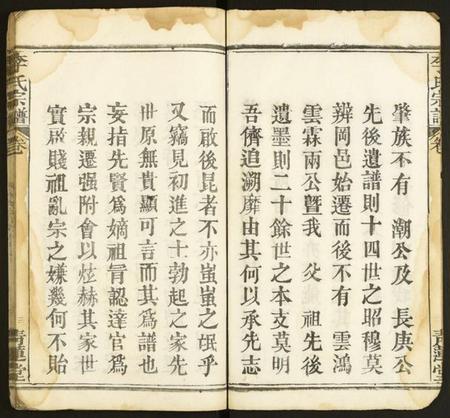 李氏宗譜
卷
肇族不有 潮公及 長庚公
先後遺譜則十四世之昭穆莫
辨岡邑始遷而後不有 雲鴻
雲霖兩公曁我 父 祖先後
遺墨則二十餘世之本支莫明
吾儕追溯靡由其何以承先志
而啟後昆者不亦蚩蚩之氓乎
又竊見初進之士勃起之家先
世原無貴顯可言而其爲譜也
妄指先賢爲嫡祖冐認達官爲
宗親遷强附會以炫赫其家世
實啟賤祖亂宗之嫌幾何不貽
李氏宗譜
卷
青蓮堂
青蓮堂